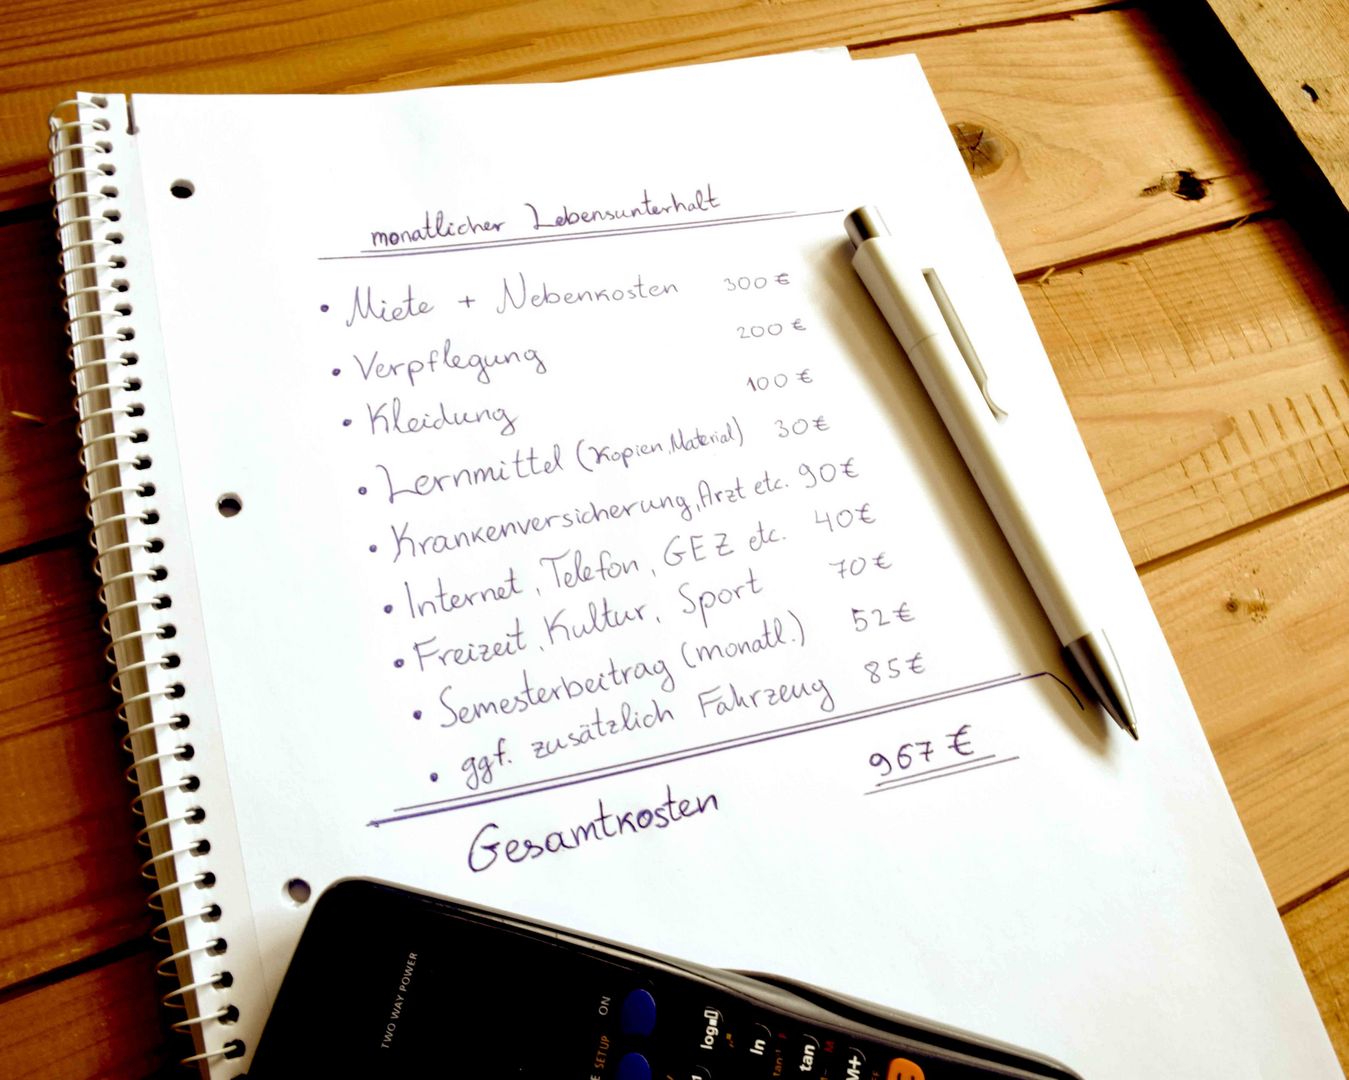 monatlicher Lebensunterhalt
• Miete + Nebenkosten 300 €
• Verpflegung 200 €
• Kleidung 100 €
• Lernmittel (Kopien, Material) 30 €
• Krankenversicherung, Arzt etc. 90 €
• Internet, Telefon, GEZ etc. 40 €
• Freizeit, Kultur, Sport 70 €
• Semesterbeitrag (monatl.) 52 €
• ggf. zusätzlich Fahrzeug 85 €
Gesamtkosten 967 €
TWO WAY POWER
ON
SETUP
log
ln
tan
M+